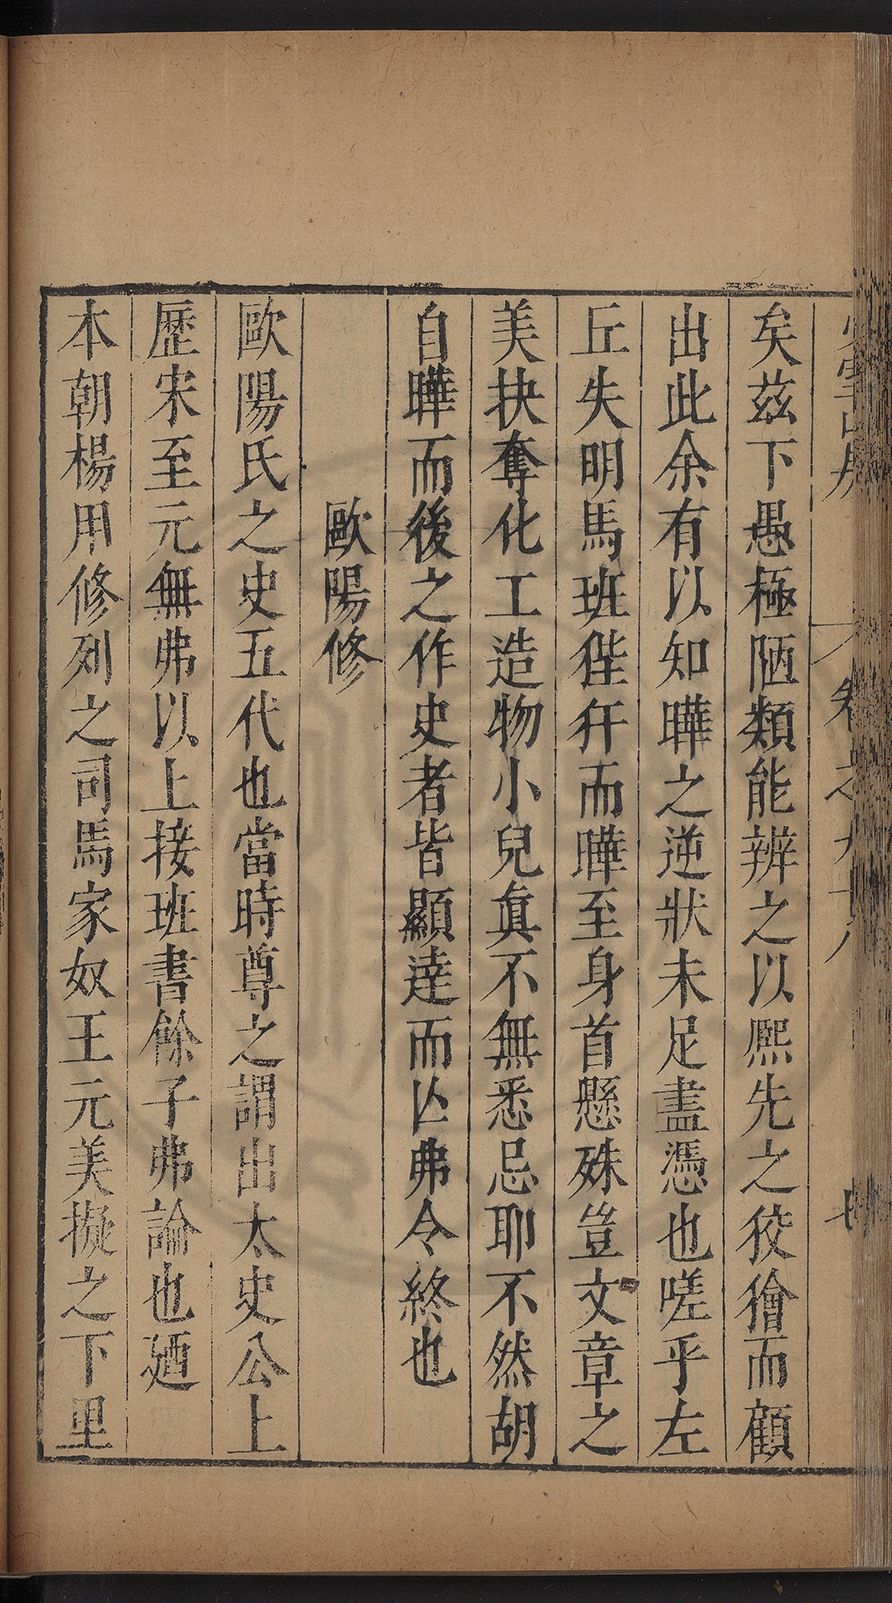 卷之九十八
矣茲下愚極陋類能辨之以熙先之狡獪而顧
出此余有以知曄之逆狀未足盡憑也嗟乎左
丘失明馬班狴犴而曄至身首懸殊豈文章之
美抉奪化工造物小兒眞不無悉忌耶不然胡
自曄而後之作史者皆顯達而亾弗令終也
歐陽修
歐陽氏之史五代也當時尊之謂出太史公上
歷宋至元無弗以上接班書餘子弗論也廼
本朝楊用修列之司馬家奴王元美擬之下里